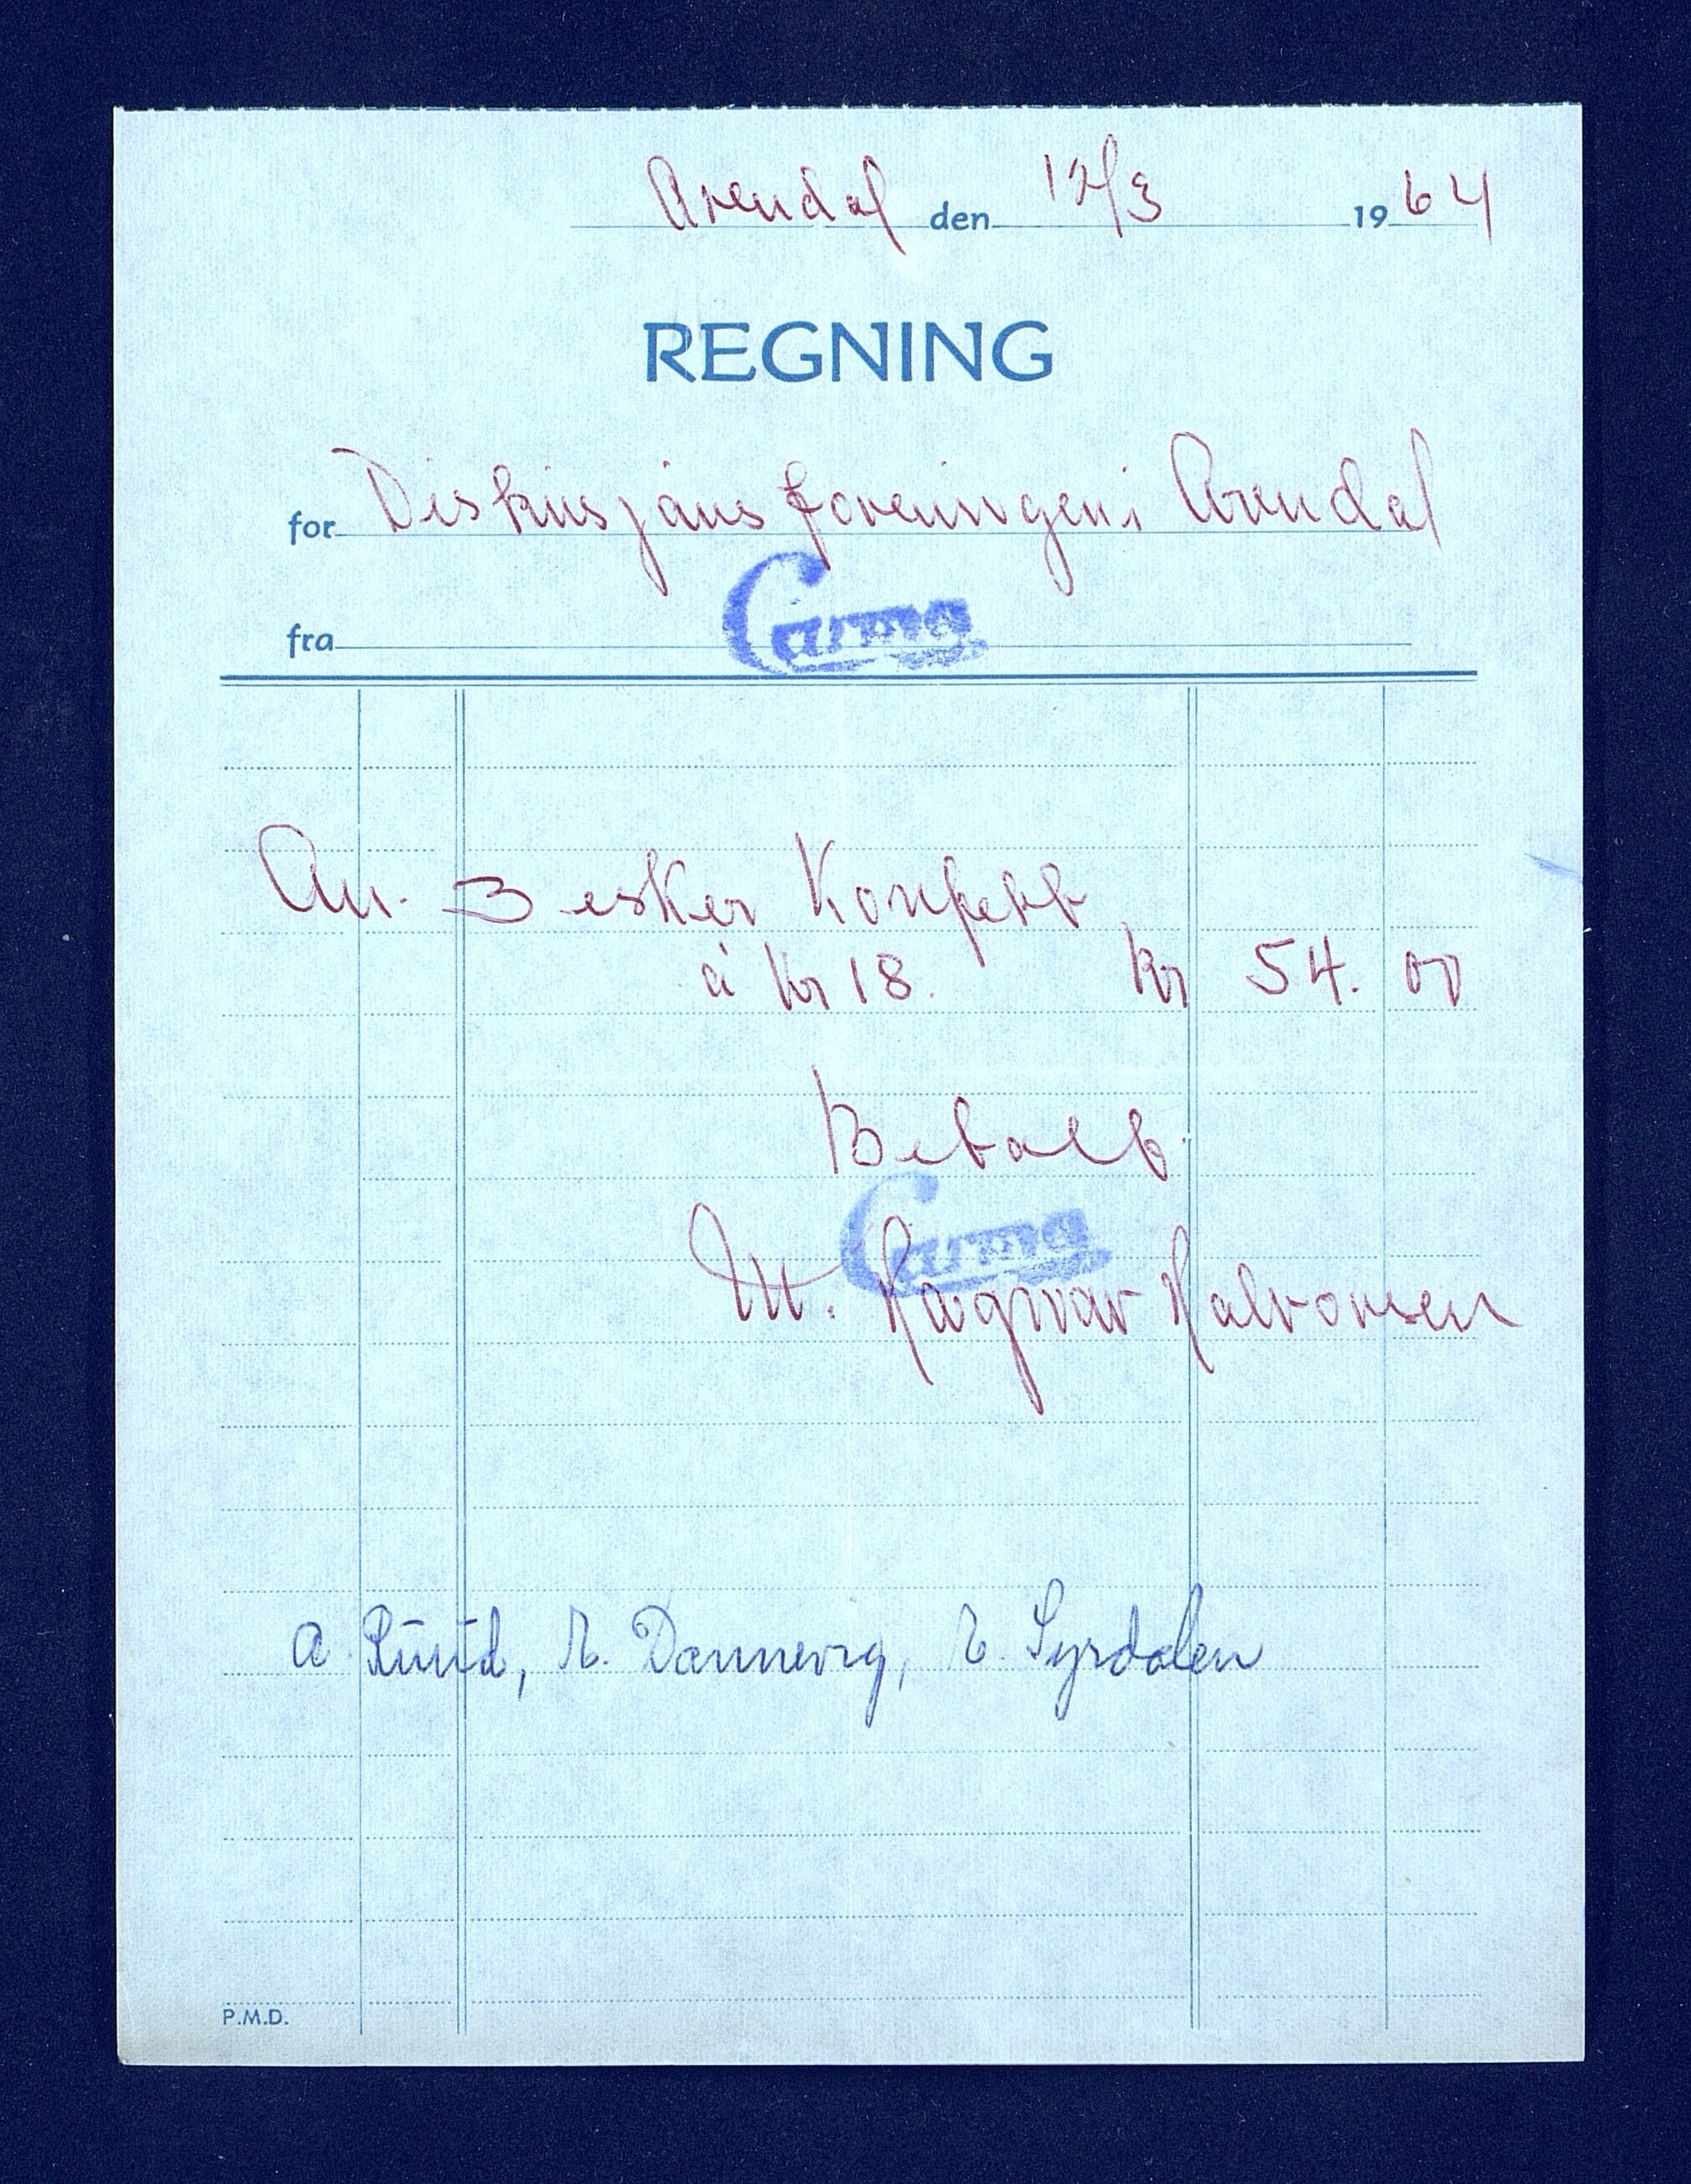 Arendal den 12/3 1964
REGNING
for Diskusjons foreningen i Arendal
fra Carma
An. 3 esker Konfekt
à kr 18. kr 54.00
Betalt
Carma
M. Ragnar Halvorsen
A. Ruud, R. Dannevig, R. Syrdalen
P.M.D.